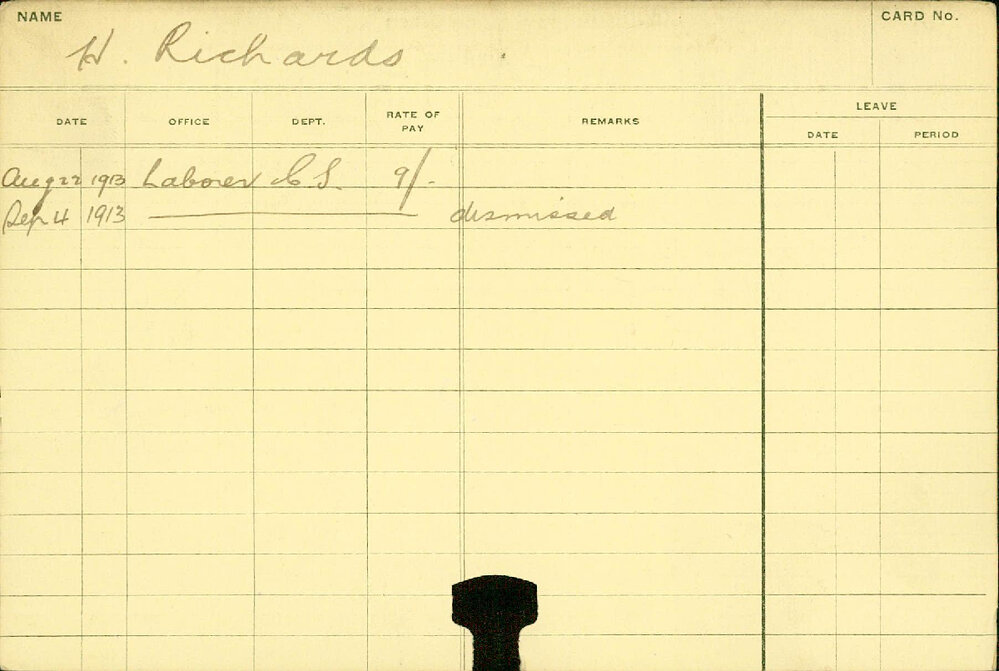 NAME
CARD No.
H. Richards
DATE OFFICE DEPT. RATE OF PAY REMARKS LEAVE
DATE PERIOD
Aug 22 1913 Laborer C.S. 9/-
Sep 4 1913 dismissed